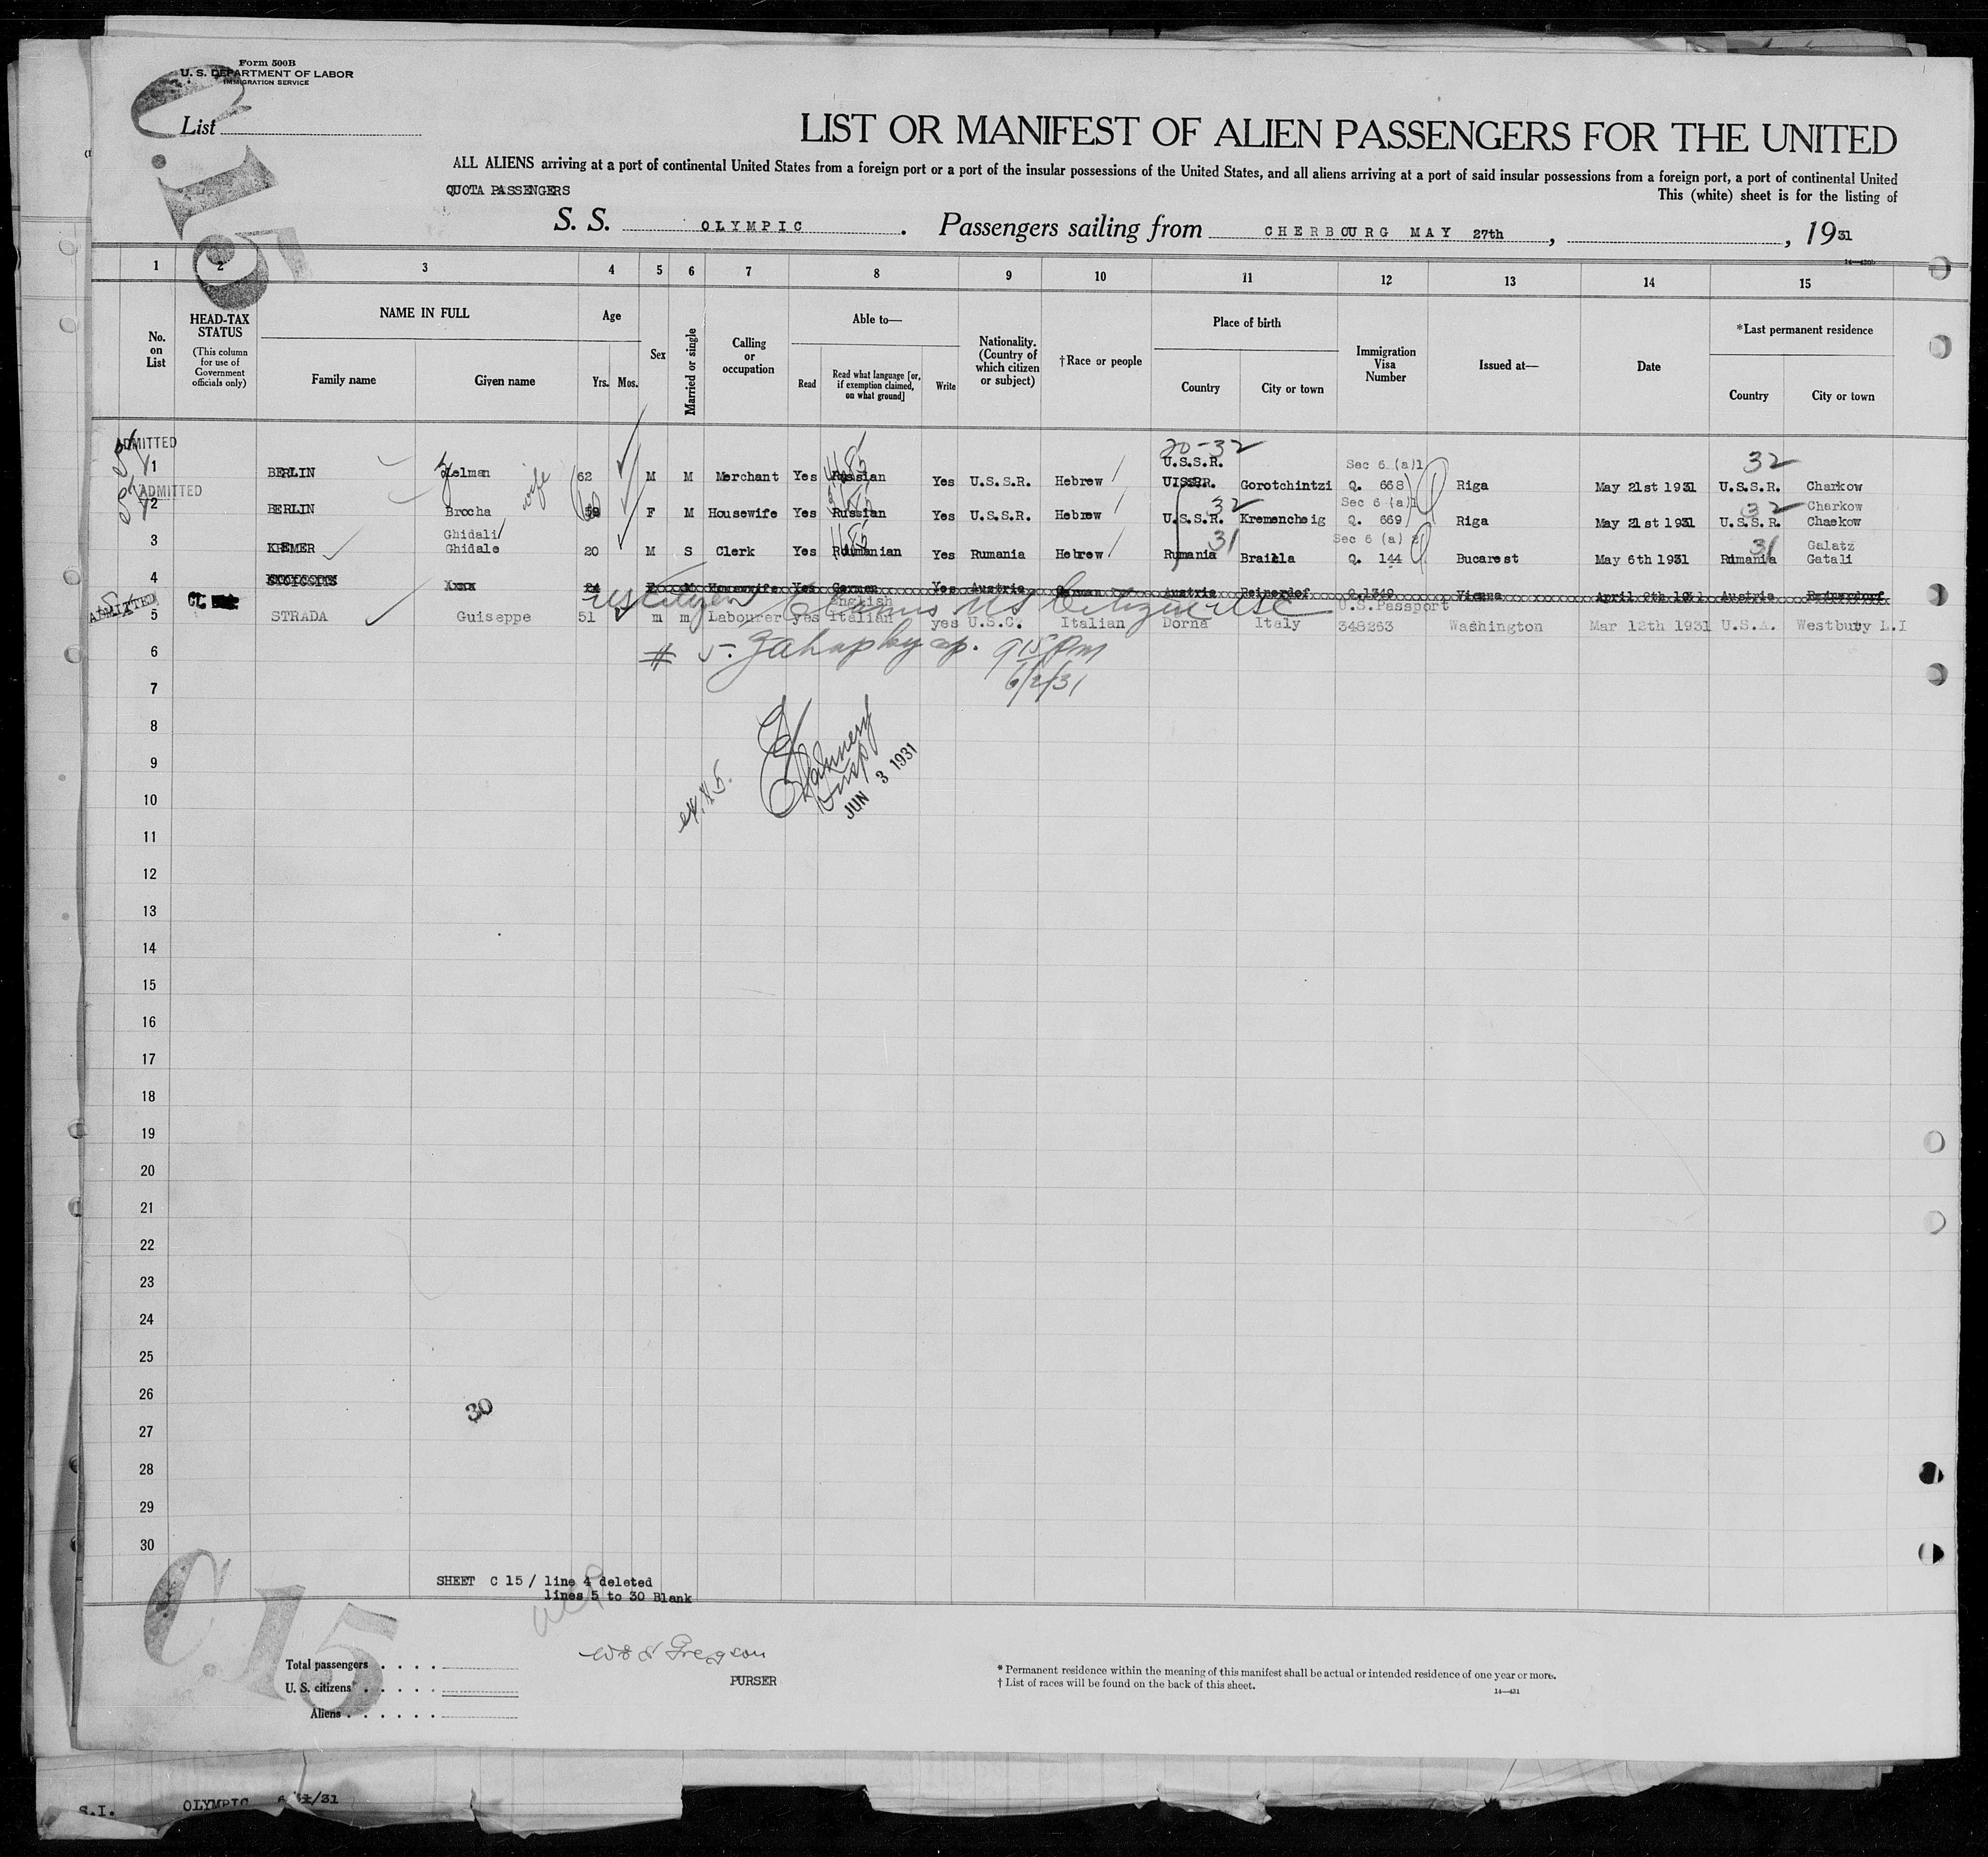 Form 500B
U. S. DEPARTMENT OF LABOR
IMMIGRATION SERVICE
C 15
List
LIST OR MANIFEST OF ALIEN PASSENGERS FOR THE UNITED
ALL ALIENS arriving at a port of continental United States from a foreign port or a port of the insular possessions of the United States, and all aliens arriving at a port of said insular possessions from a foreign port, a port of continental United
QUOTA PASSENGERS
This (white) sheet is for the listing of
S. S. OLYMPIC . Passengers sailing from CHERBOURG MAY 27th , , 1931
1 2 3 4 5 6 7 8 9 10 11 12 13 14 15
No. on List
HEAD-TAX STATUS
(This column for use of Government officials only)
NAME IN FULL
Family name
Given name
Age
Yrs. Mos.
Sex
Married or single
Calling or occupation
Able to—
Read
Read what language [or, if exemption claimed, on what ground]
Write
Nationality. (Country of which citizen or subject)
†Race or people
Place of birth
Country
City or town
Immigration Visa Number
Issued at—
Date
*Last permanent residence
Country
City or town
ADMITTED 20-32
U.S.S.R. Sec 6 (a)1 32
1 BERLIN Zelman 62 M M Merchant Yes Russian Yes U.S.S.R. Hebrew Gorotchintzi Q. 668 Riga May 21st 1931 U.S.S.R. Charkow
ADMITTED wife 32 Sec 6 (a)1 32 Charkow
2 BERLIN Brocha 59 F M Housewife Yes Russian Yes U.S.S.R. Hebrew U.S.S.R. Kremencheig Q. 669 Riga May 21st 1931 U.S.S.R. Chaekow
Ghidali 31 Sec 6 (a) 2 31 Galatz
3 KREMER Ghidale 20 M S Clerk Yes Roumanian Yes Rumania Hebrew Rumania Braila Q. 144 Bucarest May 6th 1931 Rumania Gatali
4 24 F M Housewife Yes German Yes Austria German Austria Reinersdof Q.1349 Vienna April 8th 1931 Austria Reinersdorf
ADMITTED US Citizen Claims US Citizen
English U.S.Passport
5 STRADA Guiseppe 51 m m Labourer yes Italian yes U.S.C. Italian Dorna Italy 348263 Washington Mar 12th 1931 U.S.A. Westbury L.I
6 # 5. 9 15 pm
7 6/2/31
8
9 JUN 3 1931
10
11
12
13
14
15
16
17
18
19
20
21
22
23
24
25
26
30
27
28
29
30
SHEET C 15 / line 4 deleted
lines 5 to 30 Blank
C.15
W & Gregson
PURSER
Total passengers . . . .
U. S. citizens . . . . .
Aliens . . . . . .
* Permanent residence within the meaning of this manifest shall be actual or intended residence of one year or more.
† List of races will be found on the back of this sheet.
14—431
S.I. OLYMPIC